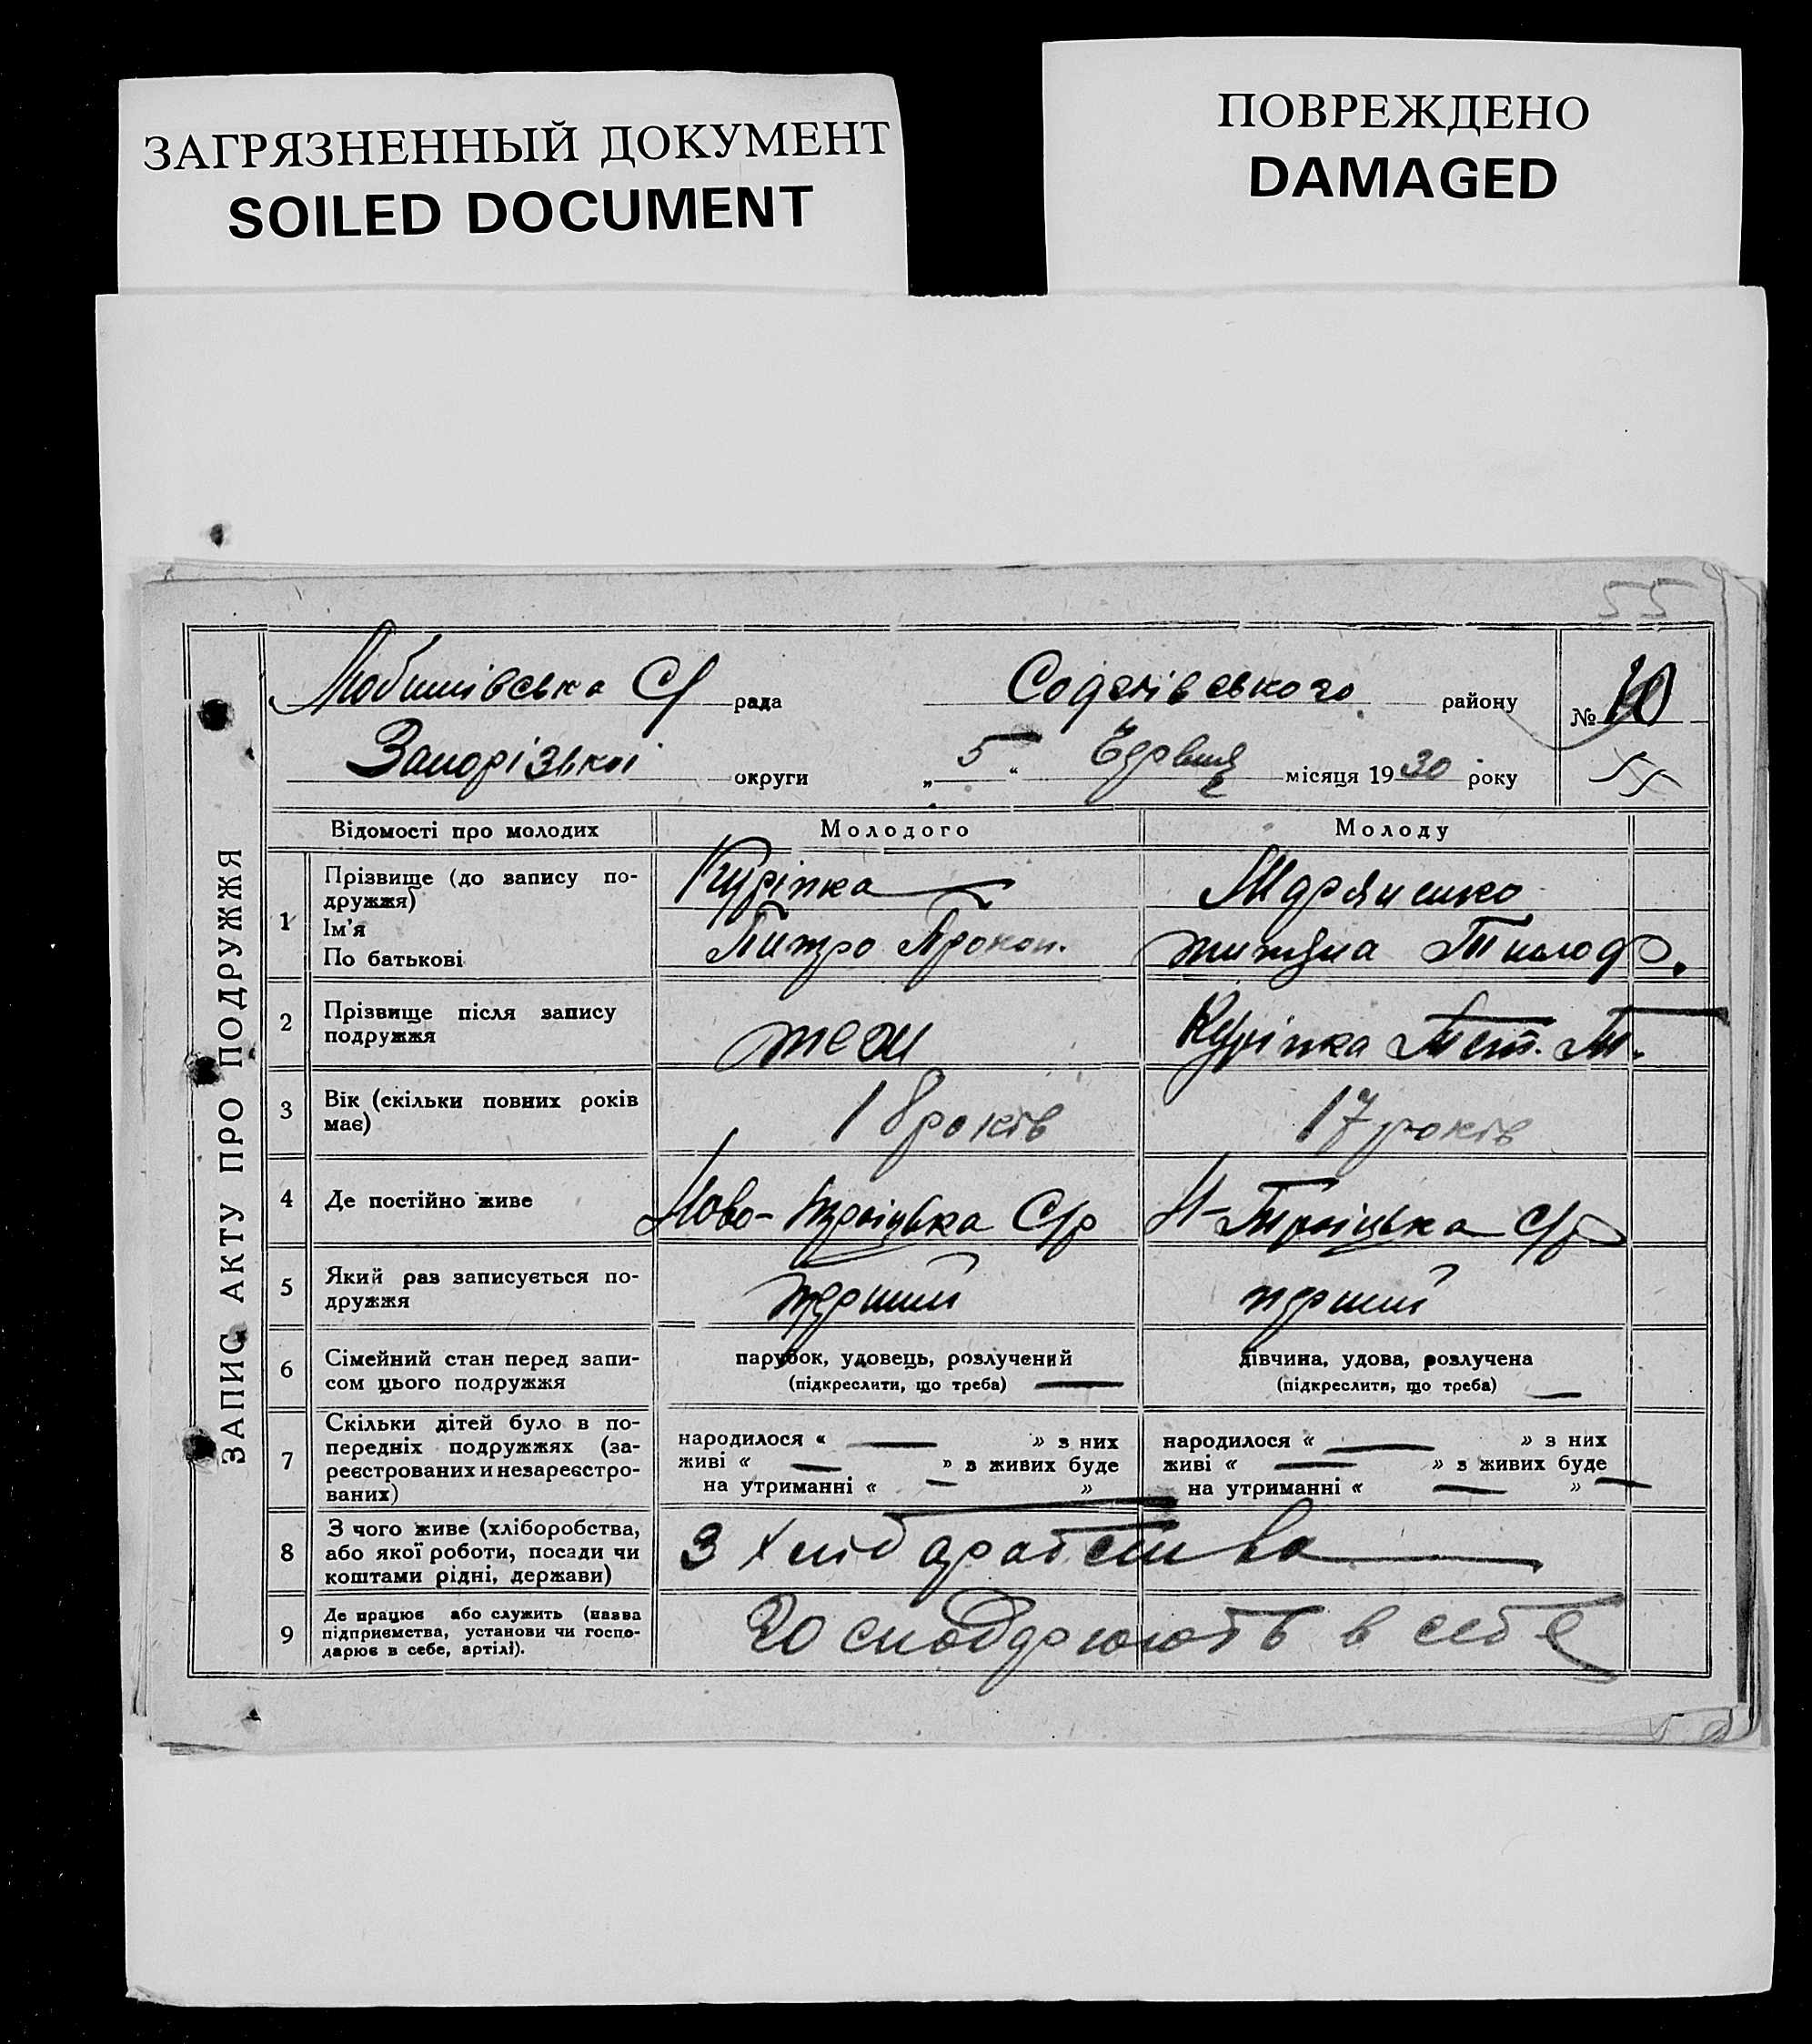 ЗАГРЯЗНЕННЫЙ ДОКУМЕНТ
SOILED DOCUMENT
ПОВРЕЖДЕНО
DAMAGED
55
ЗАПИС АКТУ ПРО ПОДРУЖЖЯ
Любимівська С/ рада Софіївського району № 10
Запорізької округи „ 5 “ Червня місяця 1930 року 55
Відомості про молодих Молодого Молоду
1 Прізвище (до запису по-
дружжя)
Ім'я
По батькові
Куріпка
Питро Прокоп.
Мартиненко
2 Прізвище після запису
подружжя
Куріпка
3 Вік (скільки повних років
має)
18 років 17 років
4 Де постійно живе
Ново-Троїцька С/р Н-Троїцька С/р
5 Який раз записується по-
дружжя
перший перший
6 Сімейний стан перед запи-
сом цього подружжя
парубок, удовець, розлучений
(підкреслити, що треба) —
дівчина, удова, розлучена
(підкреслити, що треба) —
7 Скільки дітей було в по-
передніх подружжях (за-
реєстрованих и незареєстро-
ваних)
народилося « — » з них
живі « — » з живих буде
на утриманні « — »
народилося « — » з них
живі « — » з живих буде
на утриманні « — » —
8 З чого живе (хліборобства,
або якої роботи, посади чи
коштами рідні, держави)
З хлібаратства
9 Де працює або служить (назва
підприємства, установи чи госпо-
дарює в себе, артілі).
Господарюють в себе